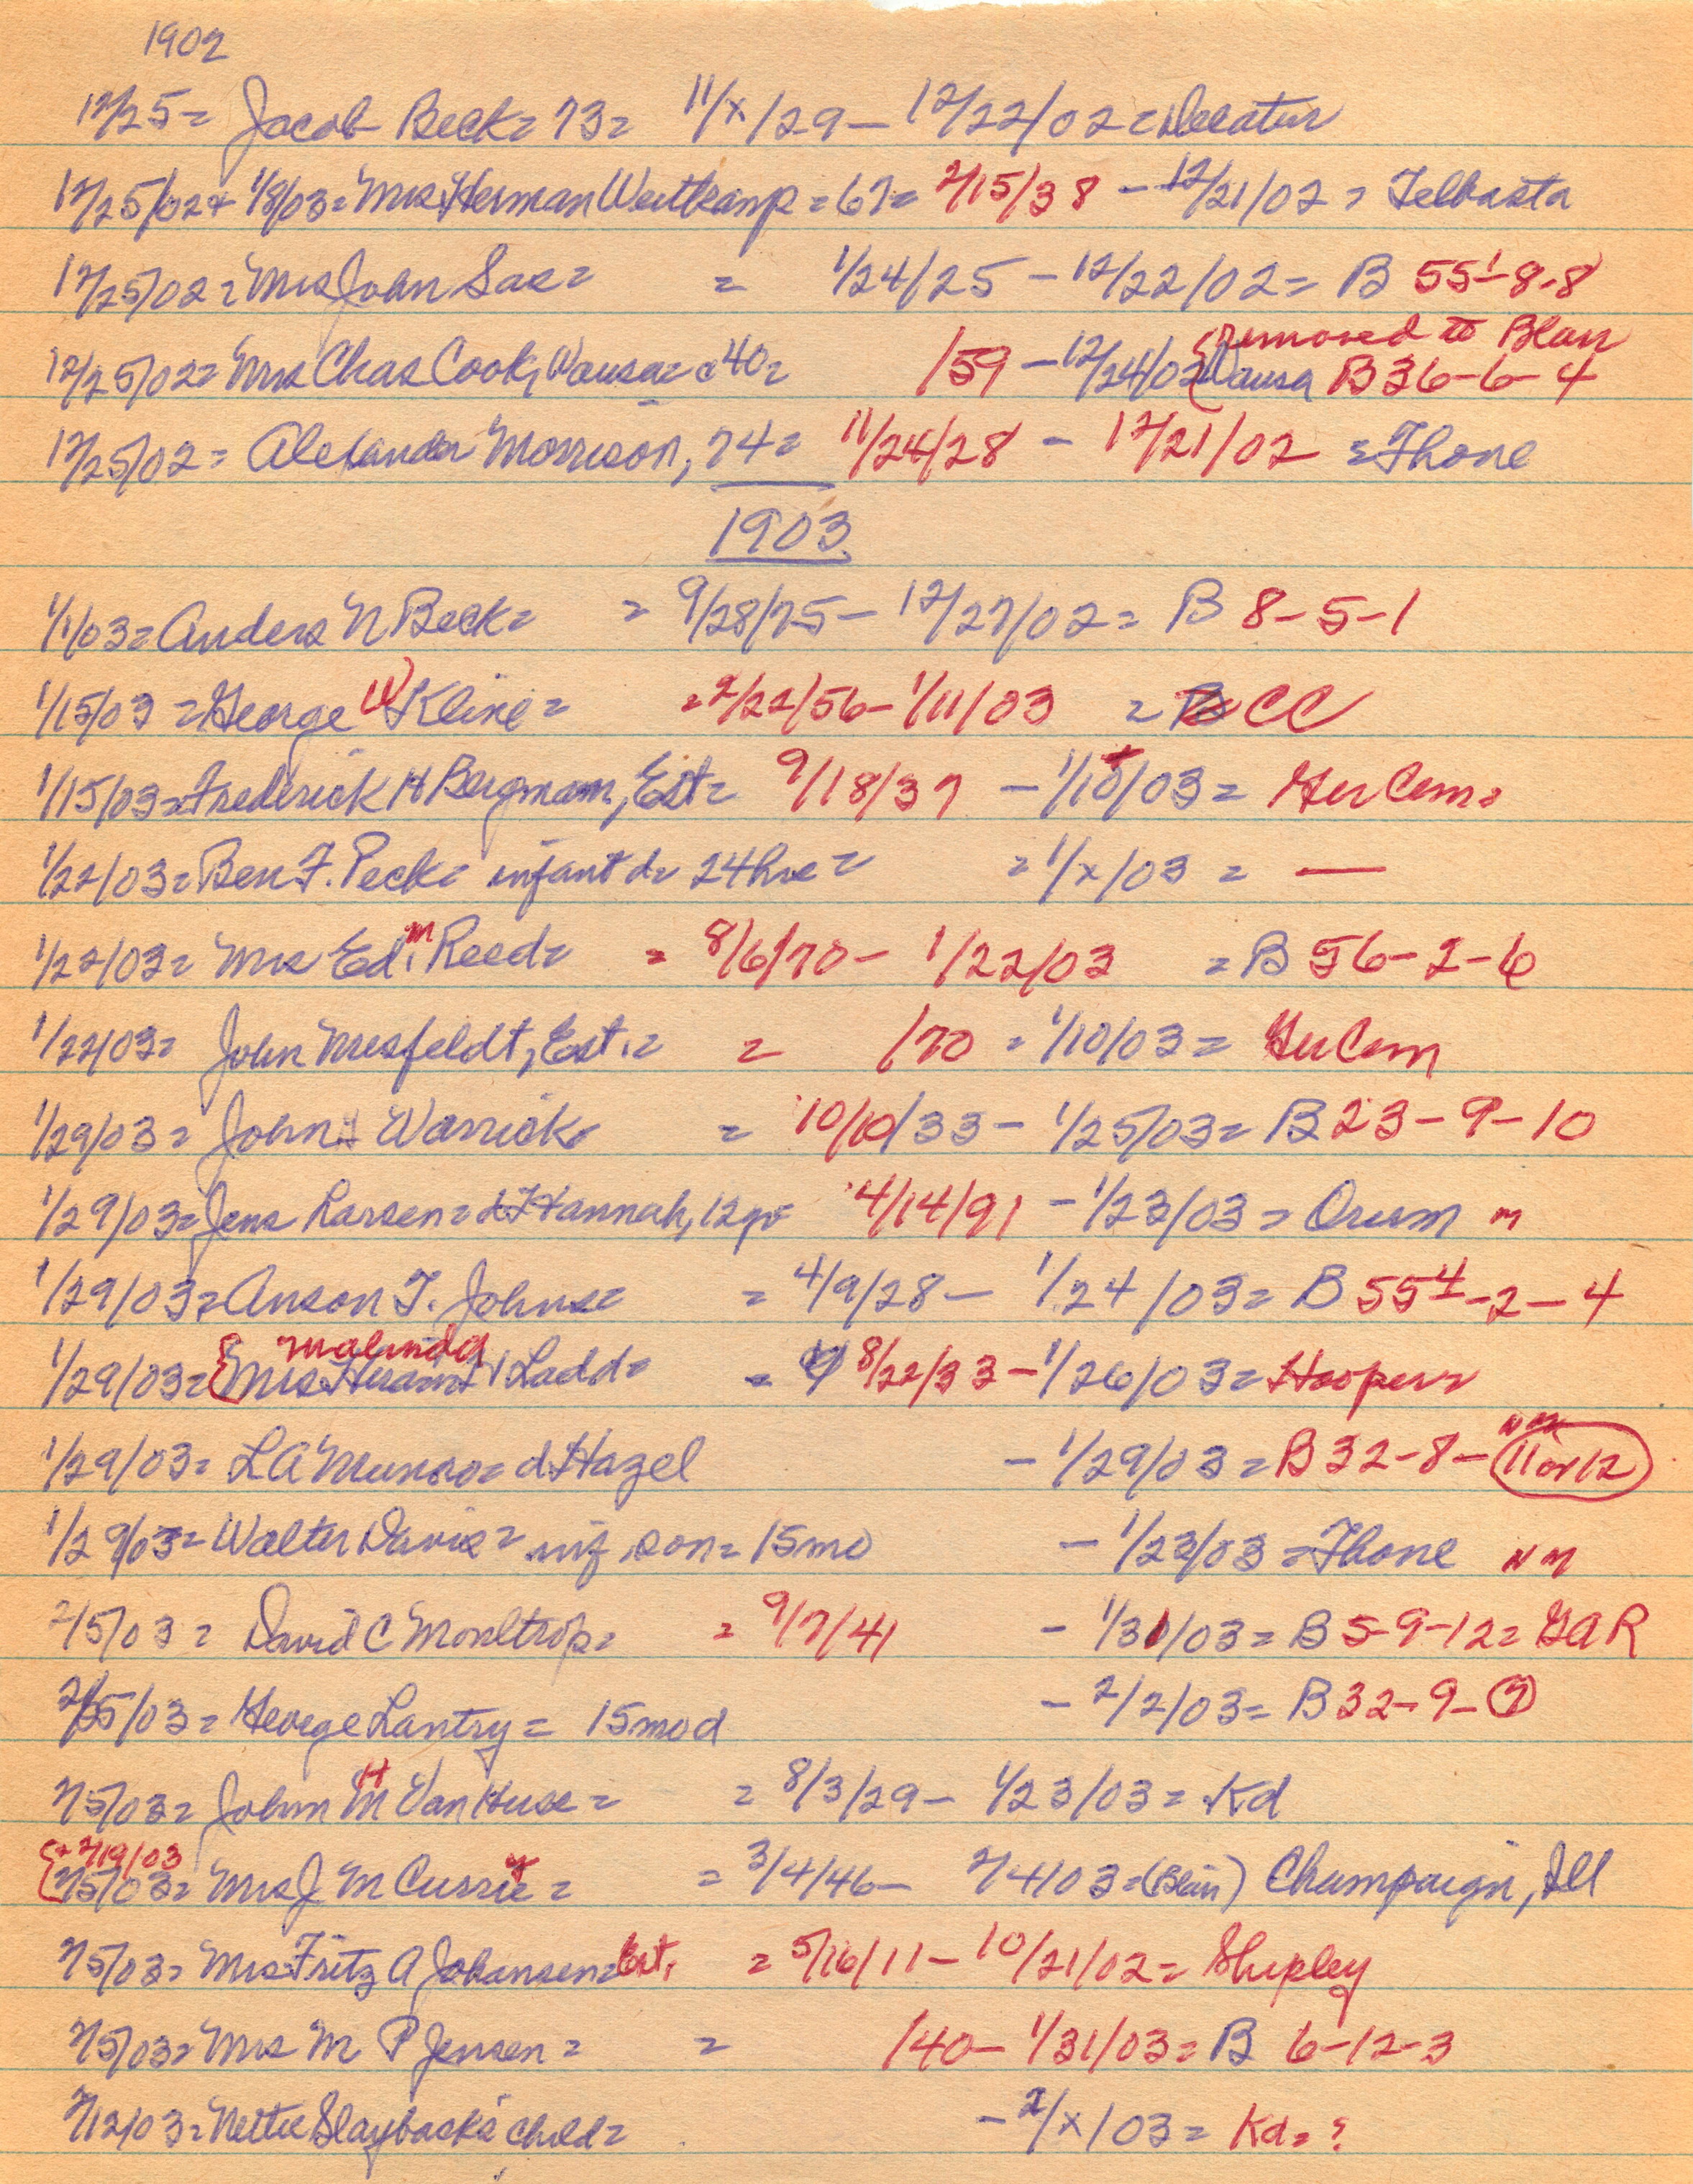 1902
12/25 = Jacob Beck = 73 = 11/x/29 - 12/22/02 = Decatur
12/25/02 + 1/8/03 = Mrs Herman Weitkamp = 67 = 2/15/38 - 12/21/02 = Telbasta
12/25/02 = Mrs John Sas = = 1/24/25 - 12/22/02 = B 55¹-8-8
removed to Blair
12/25/02 = Mrs Chas Cook, Wausa = c40 = /59 - 12/24/02 {Wausa B36-6-4
12/25/02 = Alexander Morrison, 74 = 11/24/28 - 12/21/02 = Fhone
1903
1/1/03 = Anders N Beck = = 9/28/75 - 12/27/02 = B 8-5-1
1/15/03 = George W Kline = = 2/22/56 - 1/11/03 = CC
1/15/03 = Frederick H Bergmann, Est = 9/18/37 - 1/10/03 = Ger Cem =
1/22/03 = Ben F. Peck = infant d = 24hrs = = 1/x/03 = —
1/22/03 = Mrs Ed. M Reed = = 8/6/70 - 1/22/03 = B 56-2-6
1/22/03 = John Mesfeldt, Est. = = /70 = 1/10/03 = Ger Cem
1/29/03 = John Warrick = = 10/10/33 - 1/25/03 = B 23-9-10
1/29/03 = Jens Larsen = d Hannah, 12yr 4/14/91 - 1/23/03 = Orum
1/29/03 = Anson T. Johns = = 4/9/28 - 1/24/03 = B 55⁴-2-4
Malinda
1/29/03 = {Mrs Hiram H Ladd = = 8/22/33 - 1/26/03 = Hooper =
NM
1/29/03 = L A Munson = d. Hazel - 1/29/03 = B 32-8-11 or 12
1/29/03 = Walter Davis = inf son = 15mo - 1/23/03 = Fhone NM
2/5/03 = David C Moultrop = = 9/7/41 - 1/31/03 = B 5-9-12 = GAR
2/5/03 = George Lantry = 15mo d - 2/2/03 = B 32-9-7
H
2/5/03 = John M Van Huse = = 8/3/29 - 1/23/03 = Kd
{+ 2/19/03
2/5/03 = Mrs J M Currie = = 3/4/46 - 2/4/03 = (Blair) Champaign, Ill
2/5/03 = Mrs Fritz A Johansen = Est. = 5/16/11 - 10/21/02 = Shipley
2/5/03 = Mrs M P Jensen = = /40 - 1/31/03 = B 6-12-3
2/12/03 = Nettie Slayback's child = - 2/x/03 = Kd = ?